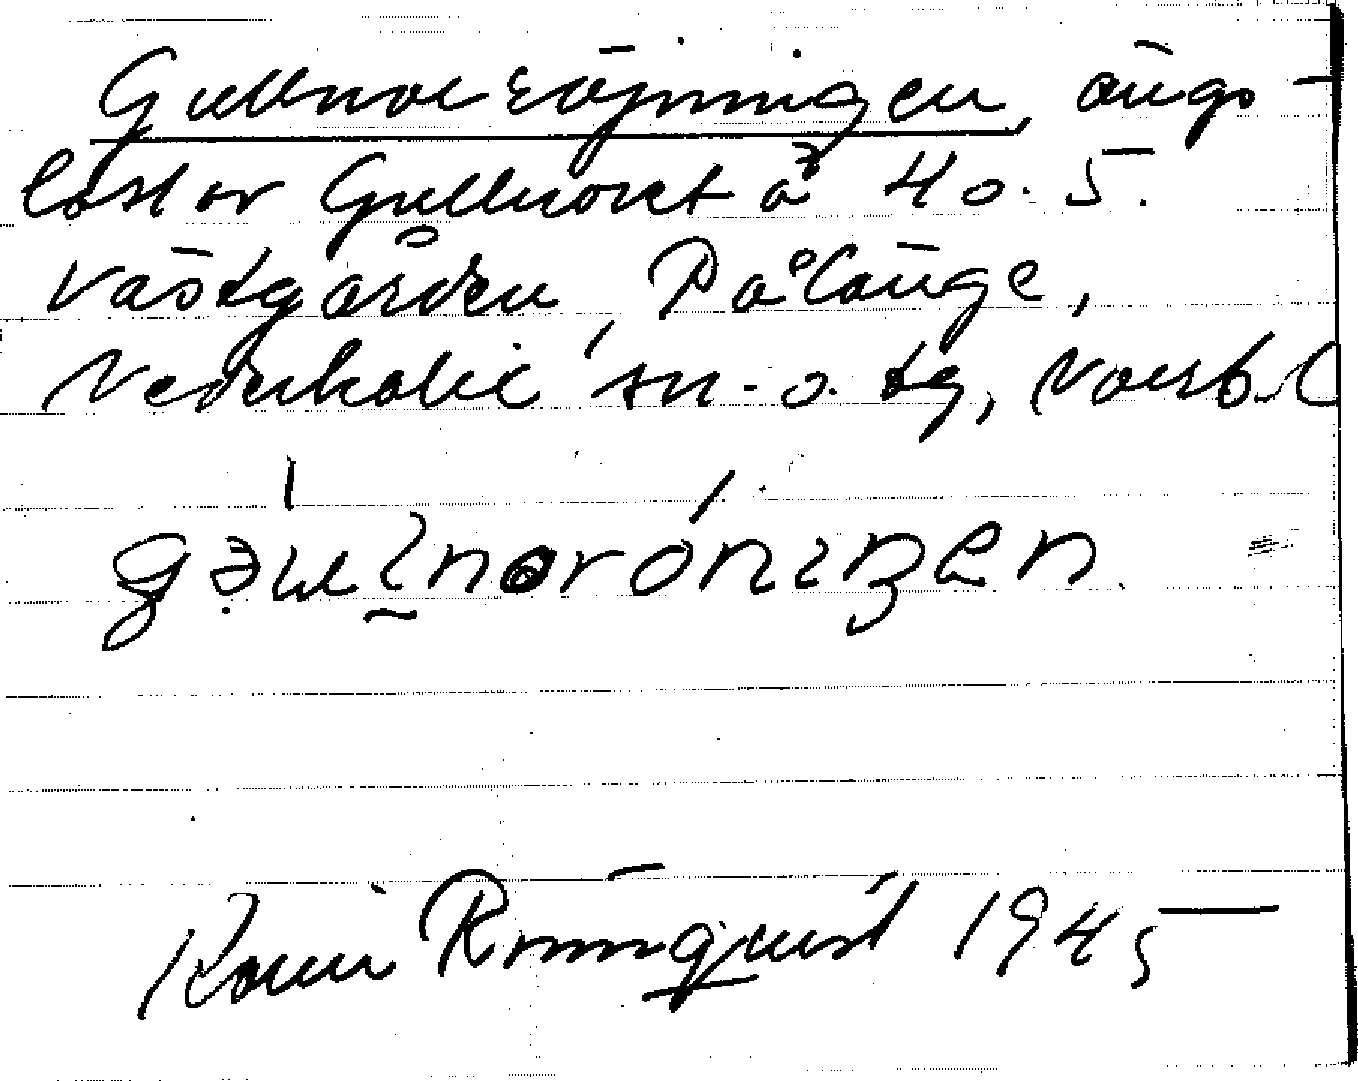 Gullnorsröjningen, ängs-
lott av Gullnoret å 4 o. 5.
Västgården, Pålänge,
Nederkalix sn. o. tg, Norrb. l
gəulnoróniŋen
Rönnqvist 1945